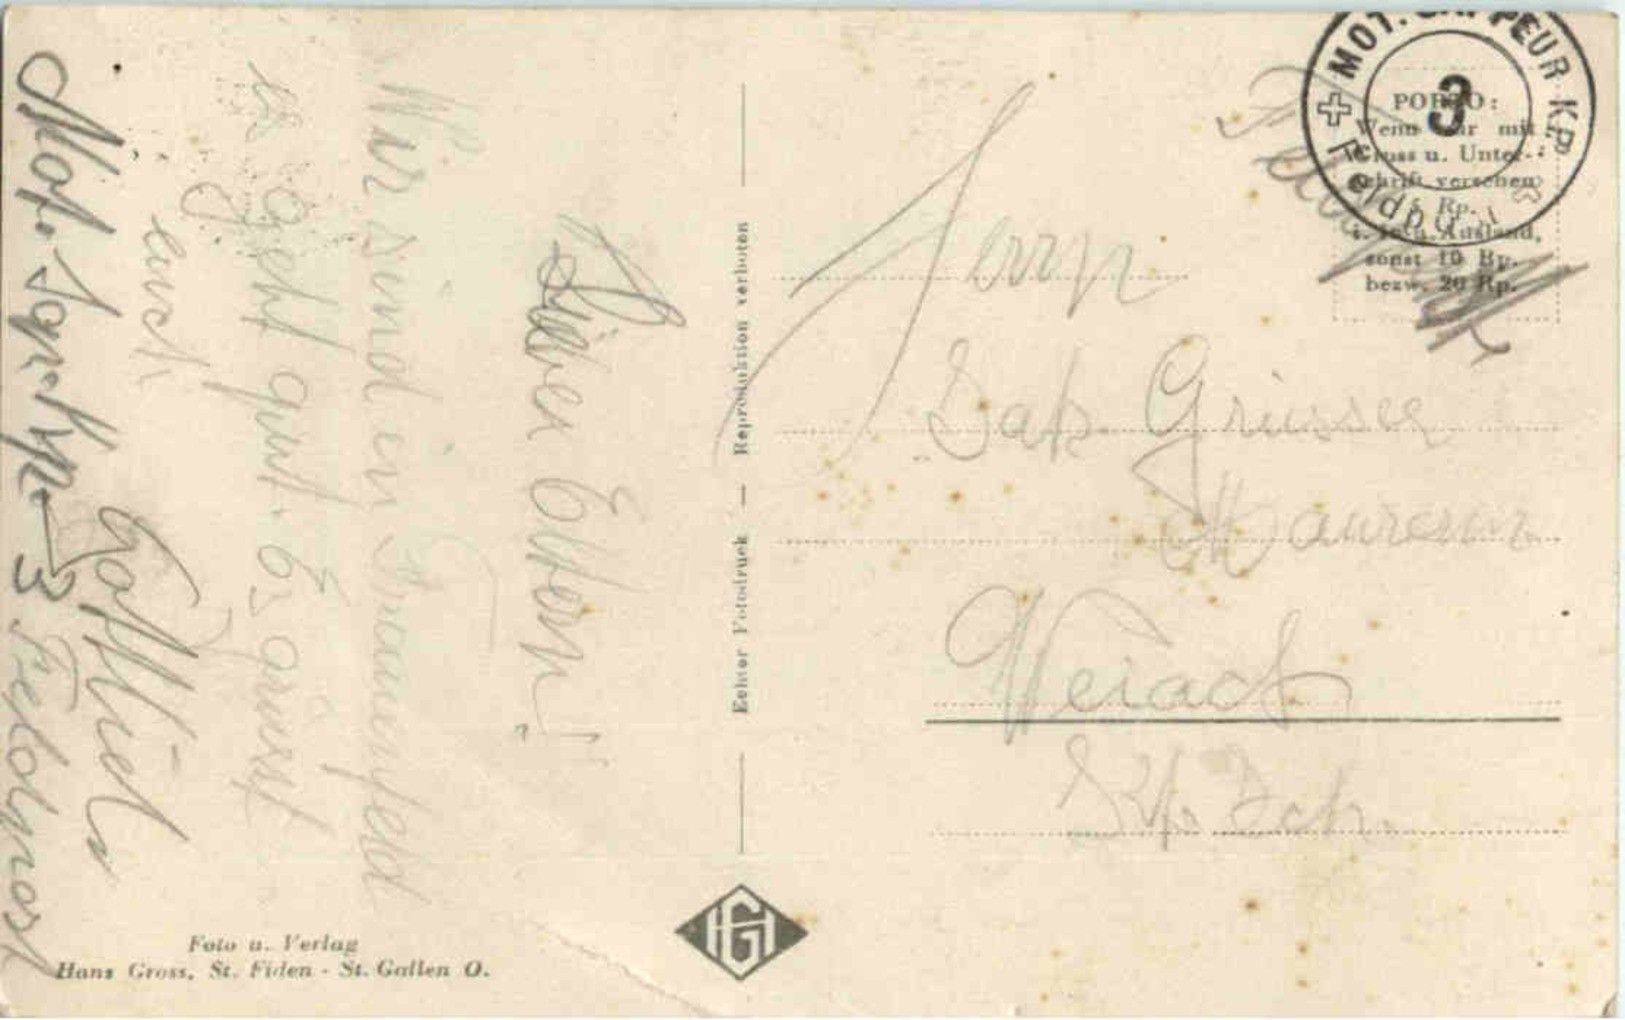 Lieber Eltern!
Wir sind in Frauenfeld
es geht gut. Es grüsst
euch
Gottlieb
Mot. Sap. Kp. 3
Feldpost
Echter Fotodruck — Reproduktion verboten
Foto u. Verlag
Hans Gross, St. Fiden - St. Gallen O.
HG
MOT. SAPPEUR KP.
3
Feldpost
PORTO:
Wenn nur mit
Gruss u. Unter-
schrift versehen
5 Rp.
i. In- u. Ausland,
sonst 10 Rp.
bezw. 20 Rp.
Herrn
Jak. Griesser
Maurer
Weiach